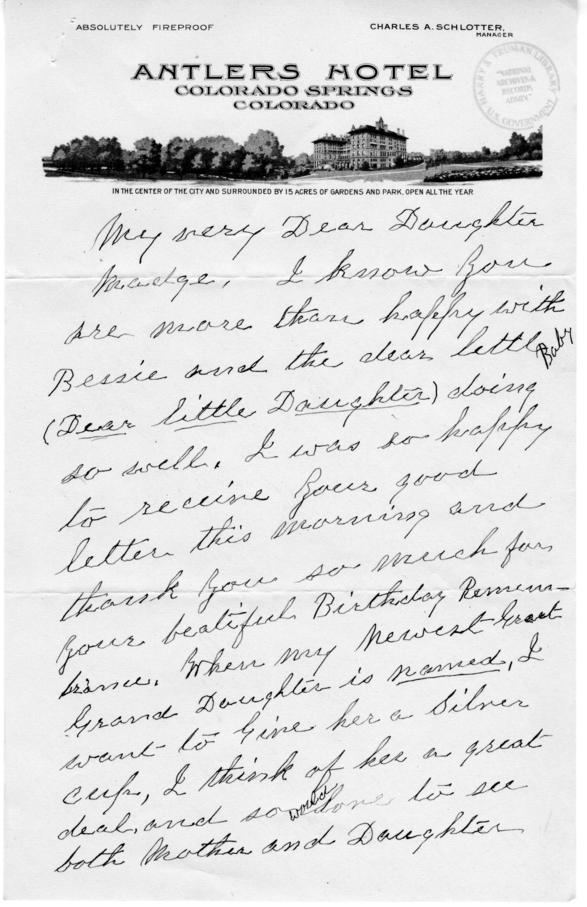 ABSOLUTELY FIREPROOF
CHARLES A. SCHLOTTER,
MANAGER
ANTLERS HOTEL
COLORADO SPRINGS
COLORADO
HARRY S. TRUMAN LIBRARY
"NATIONAL
ARCHIVES &
RECORDS
ADMIN"
U.S. GOVERNMENT
IN THE CENTER OF THE CITY AND SURROUNDED BY 15 ACRES OF GARDENS AND PARK, OPEN ALL THE YEAR
My very Dear Daughter
Madge, I know you
are more than happy with
Bessie and the dear little Baby
(Dear little Daughter) doing
so well. I was so happy
to receive your good
letter this morning and
thank you so much for
your beatiful Birthday Remem-
brance. When my Newest Great
Grand Daughter is named, I
want to Give her a Silver
cup, I think of her a great
deal, and so would love to see
both Mother and Daughter